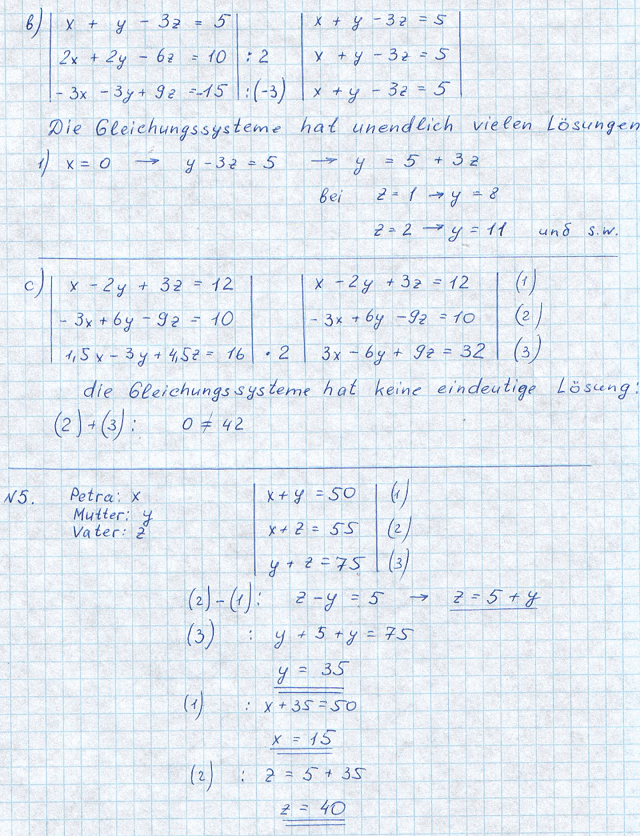 b) x + y - 3z = 5 x + y - 3z = 5
2x + 2y - 6z = 10 : 2 x + y - 3z = 5
- 3x - 3y + 9z = -15 : (-3) x + y - 3z = 5
Die Gleichungssysteme hat unendlich vielen Lösungen
1) x = 0 → y - 3z = 5 → y = 5 + 3z
bei z = 1 → y = 8
z = 2 → y = 11 und s.w.
c) x - 2y + 3z = 12 x - 2y + 3z = 12 (1)
- 3x + 6y - 9z = 10 - 3x + 6y - 9z = 10 (2)
1,5x - 3y + 4,5z = 16 · 2 3x - 6y + 9z = 32 (3)
die Gleichungssysteme hat keine eindeutige Lösung:
(2) + (3) : 0 ≠ 42
N5. Petra: x x + y = 50 (1)
Mutter: y x + z = 55 (2)
Vater: z y + z = 75 (3)
(2) - (1) : z - y = 5 → z = 5 + y
(3) : y + 5 + y = 75
y = 35
(1) : x + 35 = 50
x = 15
(2) : z = 5 + 35
z = 40